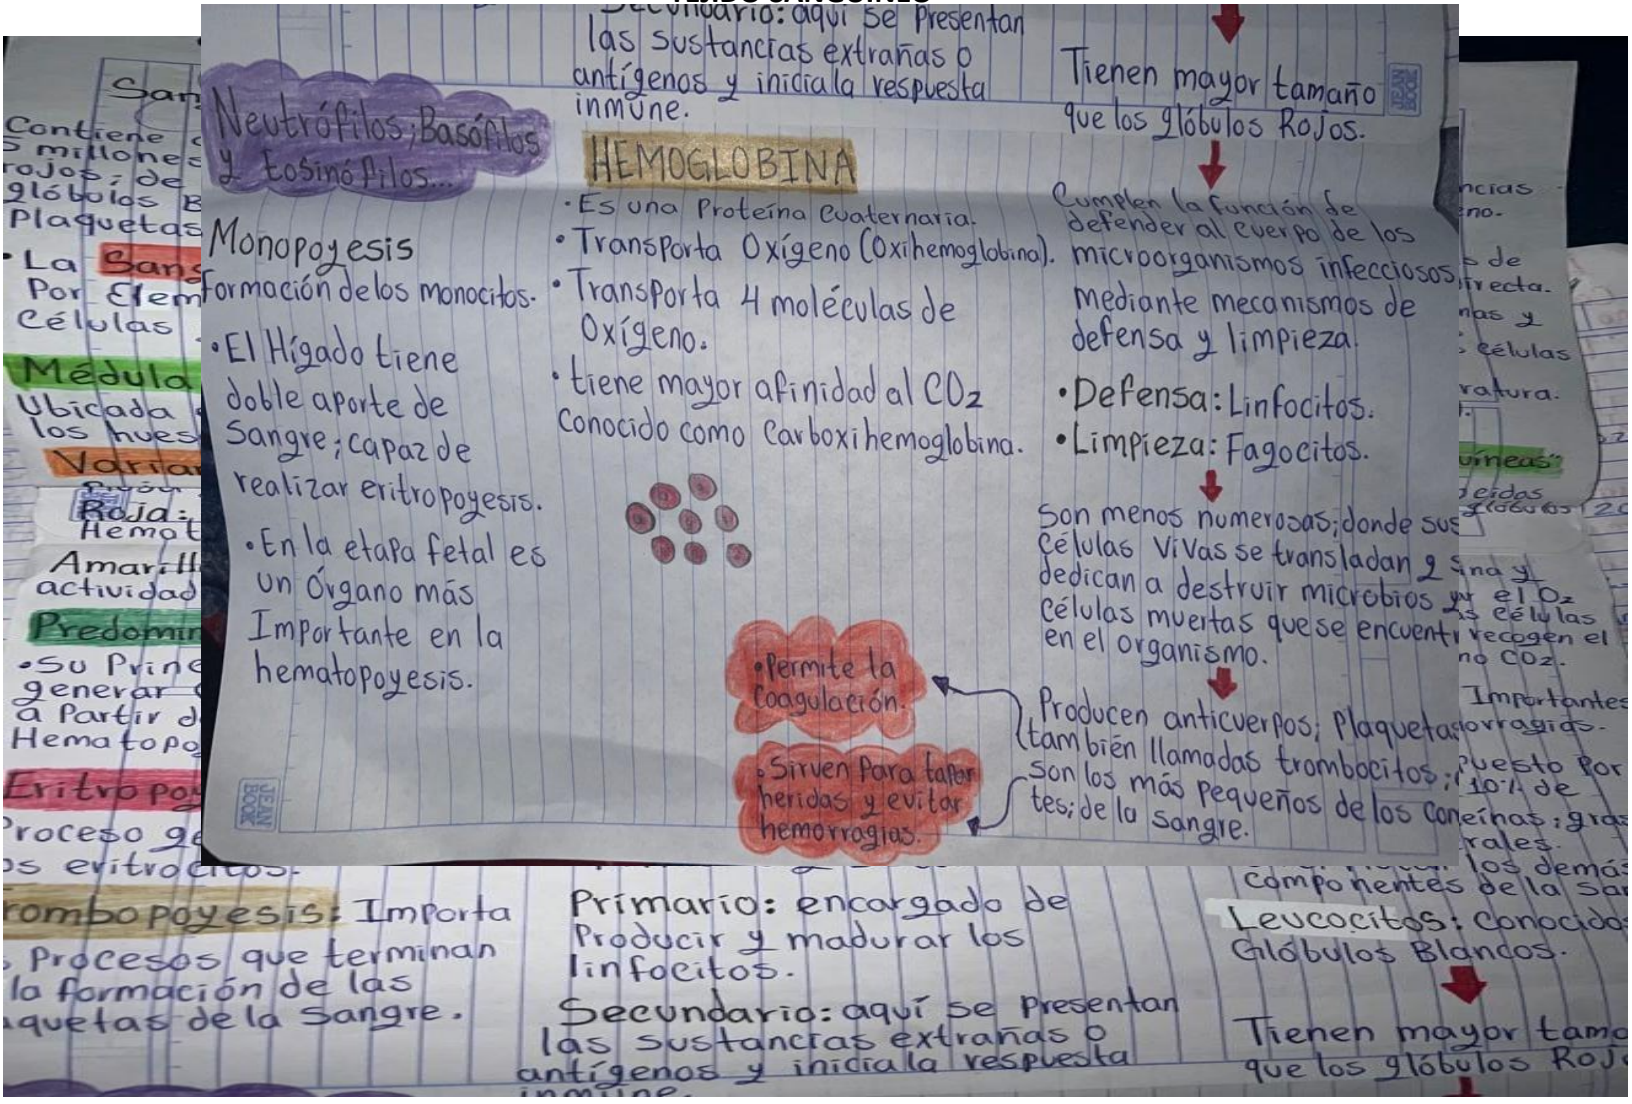 TEJIDO SANGUINEO
Secundario: aquí se Presentan
las sustancias extrañas o
antígenos y inicia la respuesta
inmune.
Neutrófilos; Basófilos
y Eosinófilos...
Monopoyesis
Formación de los monocitos.
• El Hígado tiene
doble aporte de
Sangre; capaz de
realizar eritropoyesis.
• En la etapa fetal es
un Órgano más
Importante en la
hematopoyesis.
HEMOGLOBINA
• Es una Proteína Cuaternaria.
• Transporta Oxígeno (Oxihemoglobina).
• Transporta 4 moléculas de
Oxígeno.
• tiene mayor afinidad al CO2
Conocido como Carboxihemoglobina.
• Permite la
Coagulación.
• Sirven Para tapar
heridas y evitar
hemorragias.
Tienen mayor tamaño
que los glóbulos Rojos.
Cumplen la función de
defender al cuerpo de los
microorganismos infecciosos
mediante mecanismos de
defensa y limpieza.
• Defensa: Linfocitos.
• Limpieza: Fagocitos.
Son menos numerosas; donde sus
Células Vivas se transladan y
dedican a destruir microbios y
Células muertas que se encuent
en el organismo.
Producen anticuerpos; Plaquetas
también llamadas trombocitos;
son los más pequeños de los Com
tes; de la sangre.
JEAN BOOK
San
Contiene
5 millones
rojos; de
glóbulos B
Plaquetas
• La Sang
Por Elem
Células
Médula
Ubicada
los hues
Varian
Roja:
Hemat
Amarill
actividad
Predomin
• Su Princ
generar
a Partir d
Hematopo
Eritropoy
Proceso ge
os eritrocitos.
rombopoyesis: Importa
Procesos que terminan
la formación de las
quetas de la Sangre.
Primario: encargado de
Producir y madurar los
linfocitos.
Secundario: aquí se Presentan
las sustancias extrañas o
antígenos y inicia la respuesta
inmune.
ncias
no.
de
irecta.
mas y
células
ratura.
uíneas"
glóbulos
ina y
el O2
s células
recogen el
no CO2.
Importantes
orragias.
puesto Por
10% de
eínas; gras
rales.
los demás
componentes de la San
Leucocitos: Conocidos
Glóbulos Blancos.
Tienen mayor tama
que los glóbulos Roj